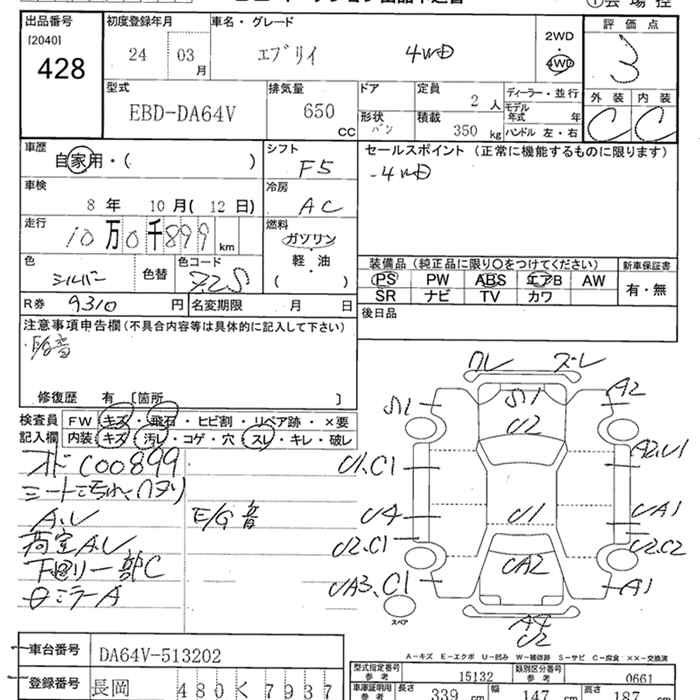 出品番号 初度登録年月 車名・グレード 2WD 評価点
[2040]
428 24 03月 エブリイ 4WD 4WD 3
型式 排気量 ドア 定員 ディーラー・並行 外装 内装
EBD-DA64V 650 CC 2人 モデル年式 年 C C
形状 バン 積載 350 kg ハンドル 左・右
車歴 自家用・( ) シフト F5 セールスポイント (正常に機能するものに限ります)
-4WD
車検 8年 10月( 12日) 冷房 AC
走行 10万0千899 km 燃料 ガソリン・軽・油 ( )
装備品 (純正品に限り○をつけてください) 新車保証書
色 シルバー 色替 色コード Z2S PS PW ABS エアB AW 有・無
SR ナビ TV カワ
R券 9310円 名変期限 月 日 後日品
注意事項申告欄 (不具合内容等は具体的に記入して下さい)
E/G音
修復歴 有 [箇所 ]
検査員 FW キズ・飛石・ヒビ割・リペア跡・×要
記入欄 内装 キズ・汚レ・コゲ・穴・スレ・キレ・破レ
ワレ ズレ
S1 S1 A2
U2
オドC00899 U1、C1 A2、U1
シート汚れ、
A、U E/G音 U4 U1 UA1
荷室A、U U2、C1 U2、C2
下回り一部C UA3、C1 UA2 A1
ミラーA
スペア A4
U2
A-キズ E-エクボ U-凹み W-補修跡 S-サビ C-腐食 ××-交換済
車台番号 DA64V-513202
型式指定番号 参考 15132 類別区分番号 参考 0661
登録番号 長岡 480 く 7937
車庫証明用 参考 長さ 339 cm 幅 147 cm 高さ 187 cm